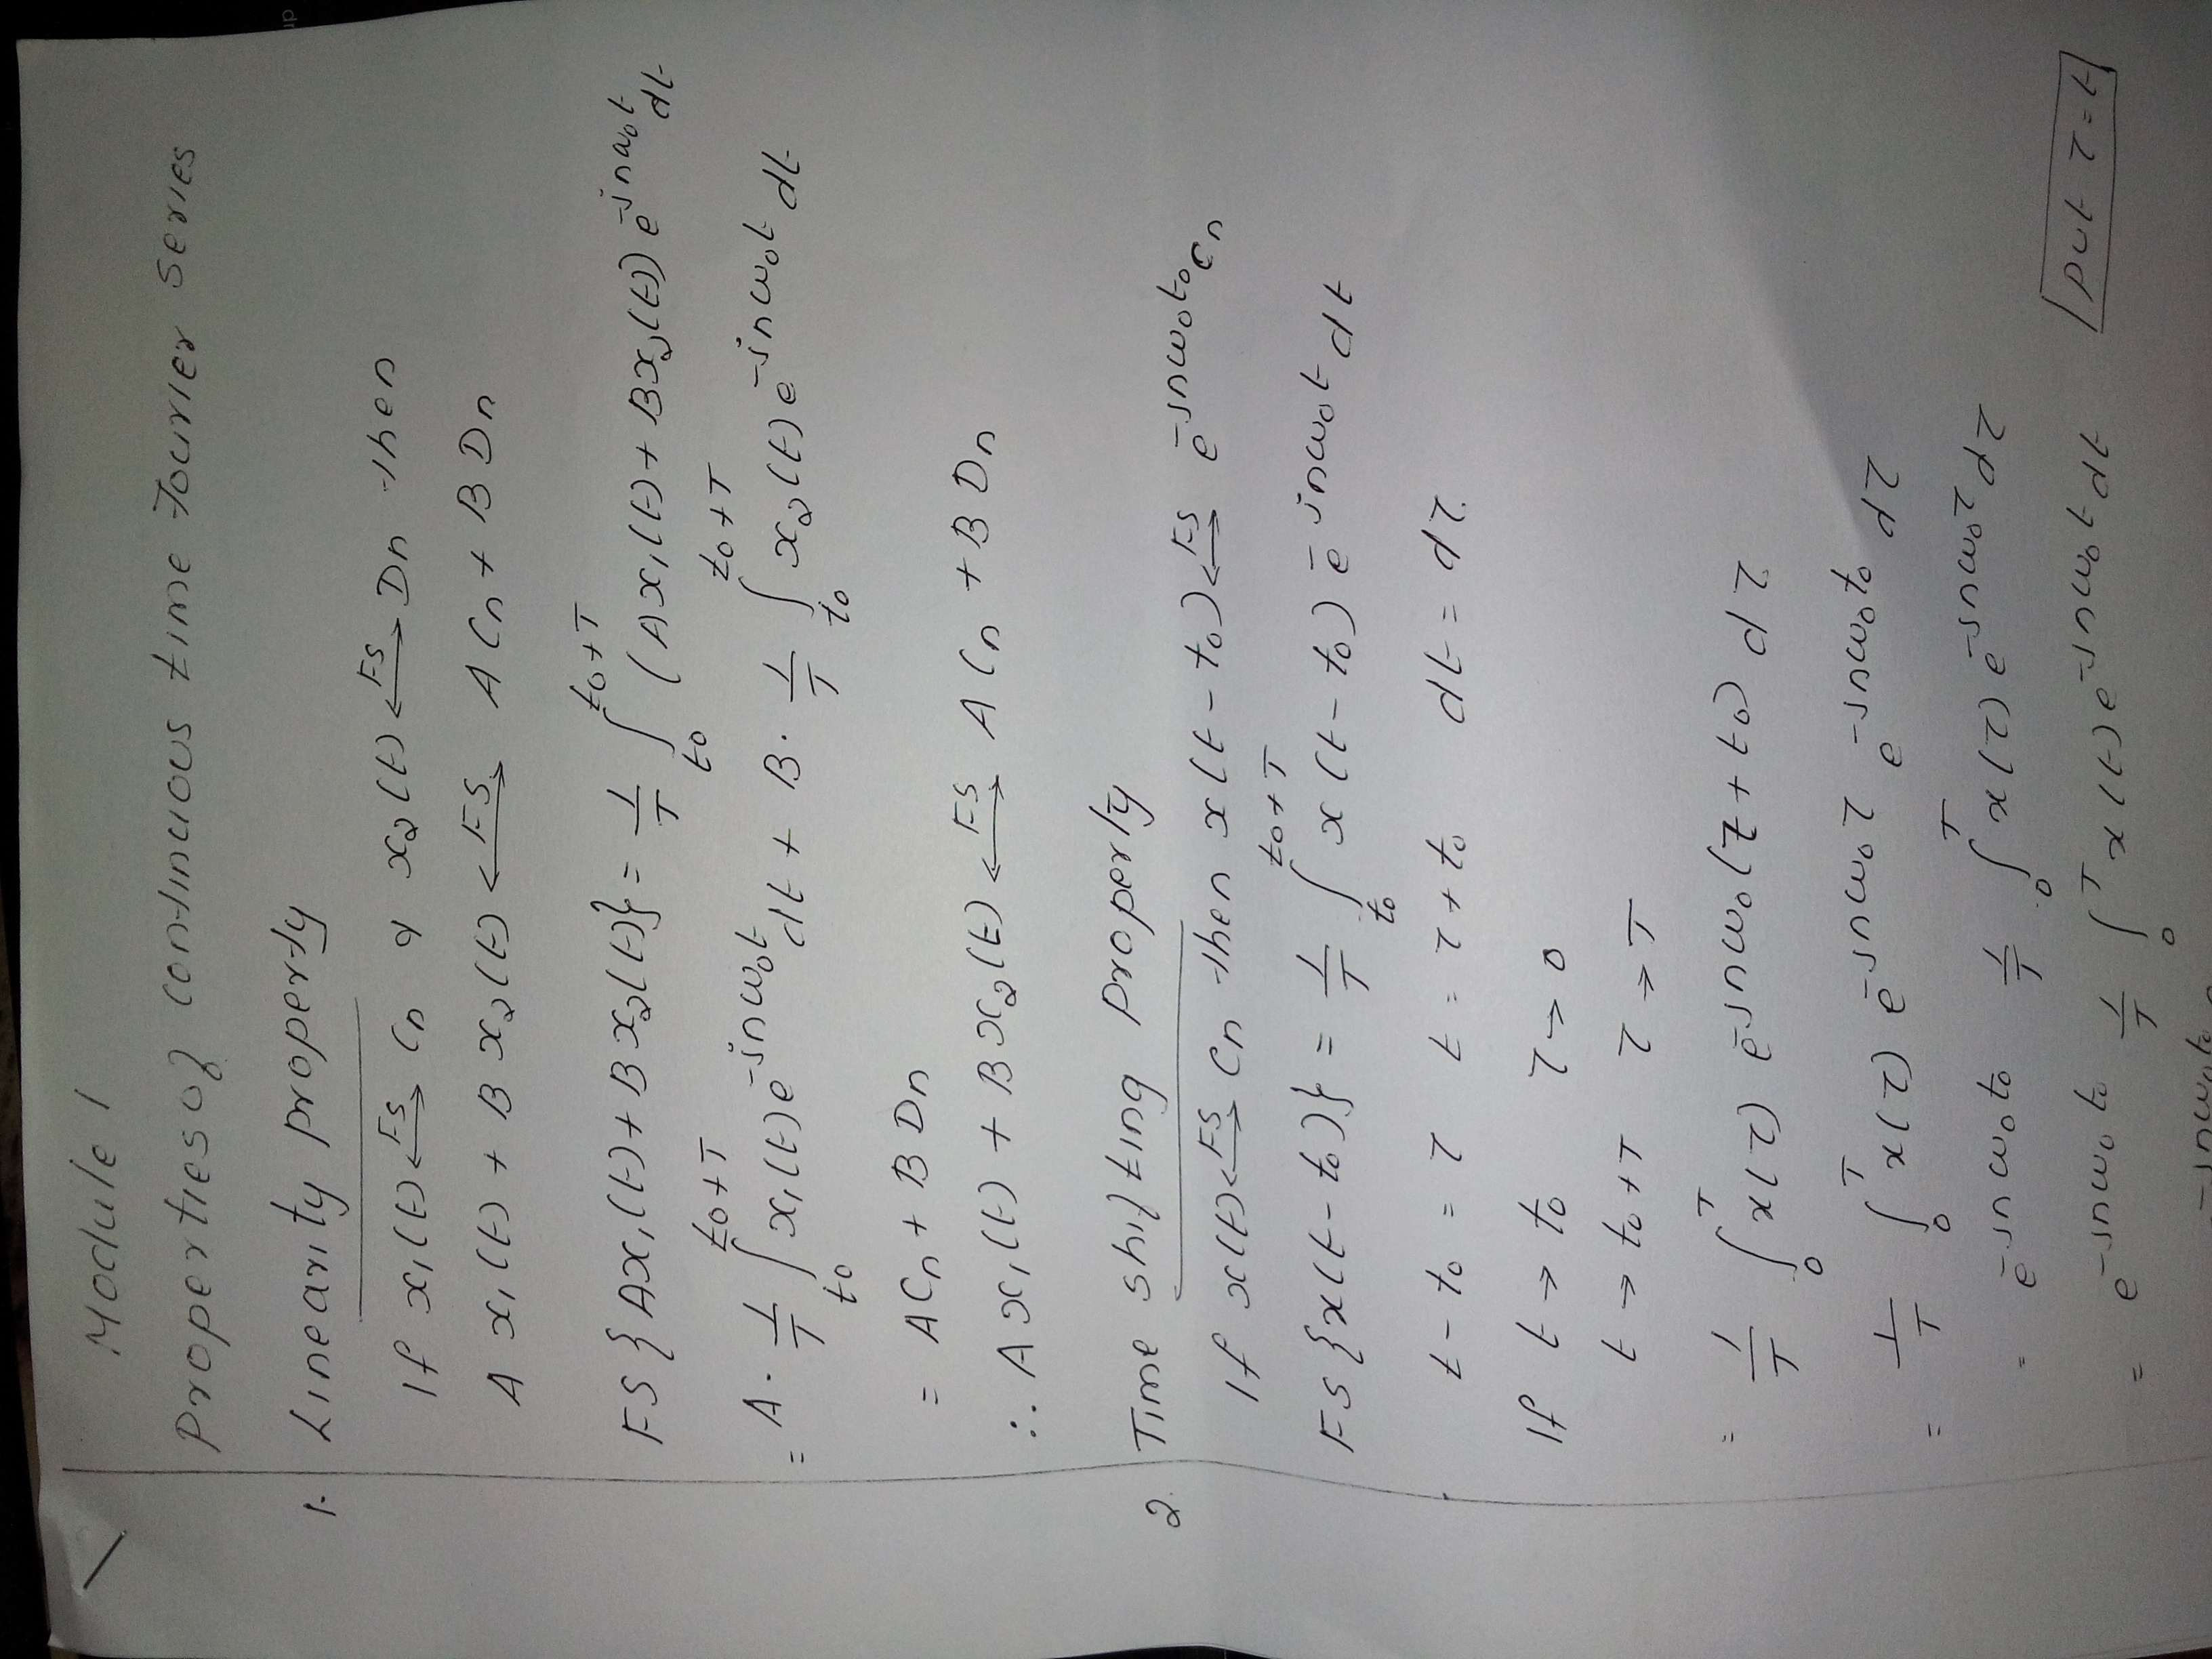 Module 1
Properties of continuous time Fourier series
1. Linearity property
If x₁(t) ←FS→ Cn & x₂(t) ←FS→ Dn then
A x₁(t) + B x₂(t) ←FS→ A Cn + B Dn
FS{Ax₁(t) + B x₂(t)} = 1/T ∫_{t₀}^{t₀+T} (Ax₁(t) + Bx₂(t)) e^{-jnω₀t} dt
= A. 1/T ∫_{t₀}^{t₀+T} x₁(t) e^{-jnω₀t} dt + B. 1/T ∫_{t₀}^{t₀+T} x₂(t) e^{-jnω₀t} dt
= ACn + B Dn
∴ A x₁(t) + B x₂(t) ←FS→ A Cn + B Dn
2. Time shifting property
If x(t) ←FS→ Cn then x(t - t₀) ←FS→ e^{-jnω₀t₀} Cn
FS{x(t - t₀)} = 1/T ∫_{t₀}^{t₀+T} x(t - t₀) e^{-jnω₀t} dt
t - t₀ = τ t = τ + t₀ dt = dτ
If t → t₀ τ → 0
t → t₀ + T τ → T
= 1/T ∫_0^T x(τ) e^{-jnω₀(τ + t₀)} dτ
= 1/T ∫_0^T x(τ) e^{-jnω₀τ} e^{-jnω₀t₀} dτ
= e^{-jnω₀t₀} 1/T ∫_0^T x(τ) e^{-jnω₀τ} dτ
= e^{-jnω₀t₀} 1/T ∫_0^T x(t) e^{-jnω₀t} dt put τ = t
-jnω₀t₀